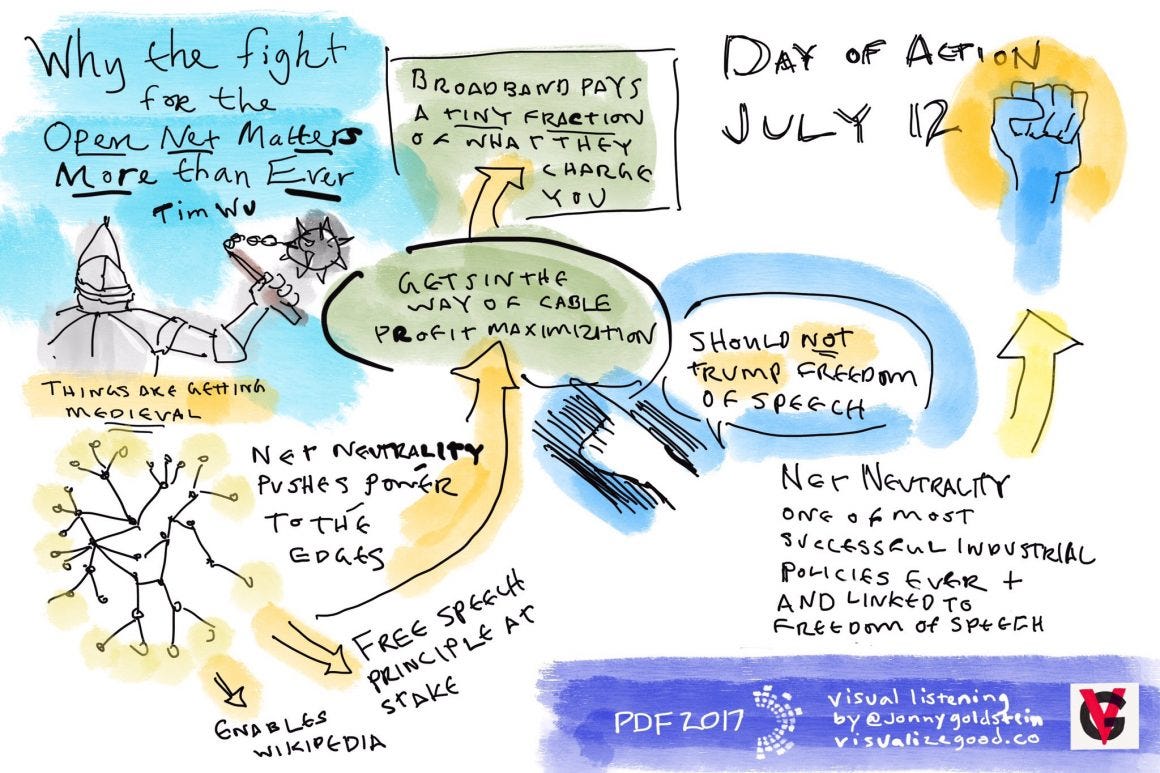 Why the fight
for the
Open Net Matters
More than Ever
Tim Wu
THINGS ARE GETTING
MEDIEVAL
BROADBAND PAYS
A TINY FRACTION
OF WHAT THEY
CHARGE
YOU
DAY OF ACTION
JULY 12
GETS IN THE
WAY OF CABLE
PROFIT MAXIMIZITION
SHOULD NOT
TRUMP FREEDOM
OF SPEECH
NET NEUTRALITY
PUSHES POWER
TO THE
EDGES
FREE SPEECH
PRINCIPLE AT
STAKE
ENABLES
WIKIPEDIA
NET NEUTRALITY
ONE OF MOST
SUCCESSFUL INDUSTRIAL
POLICIES EVER +
AND LINKED TO
FREEDOM OF SPEECH
PDF 2017
visual listening
by @jonnygoldstein
visualizegood.co
VG